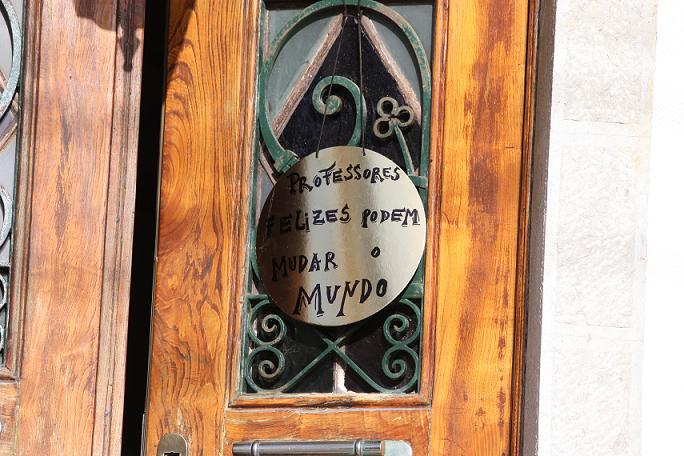 PROFESSORES
FELIZES PODEM
MUDAR O
MUNDO